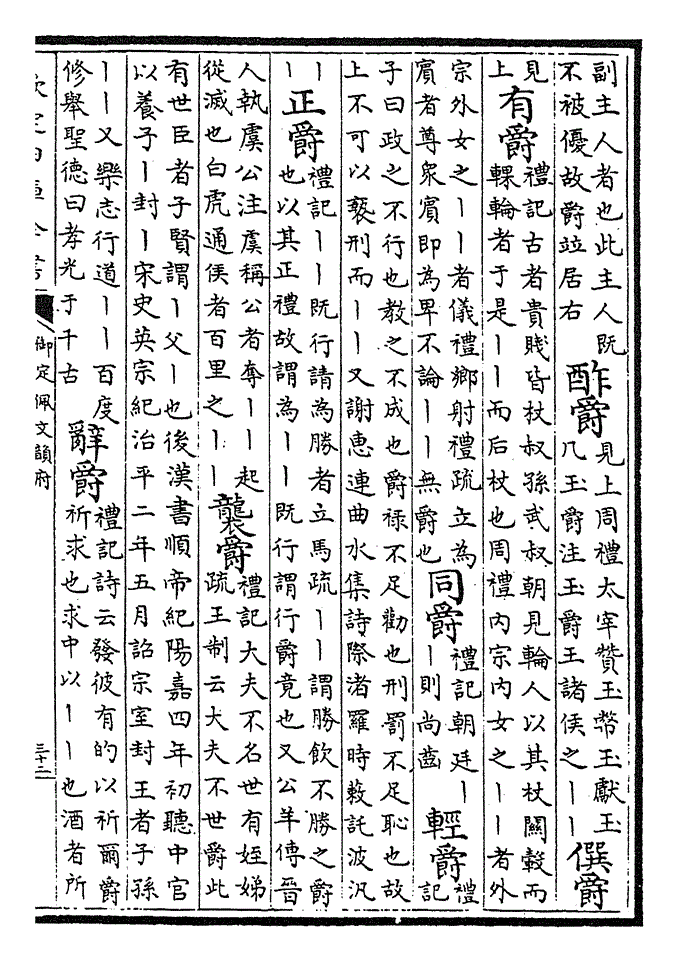 副主人者也此主人既
不被優故爵竝居右
酢爵
見上周禮太宰贊玉幣玉獻玉
几玉爵注玉爵王諸侯之丨丨
僎爵
見
上
有爵
禮記古者貴賤皆杖叔孫武叔朝見輪人以其杖關轂而
輠輪者于是丨丨而后杖也周禮內宗內女之丨丨者外
宗外女之丨丨者儀禮鄉射禮疏立為
賔者尊衆賔即為卑不論丨丨無爵也
同爵
禮記朝廷丨
丨則尚齒
輕爵
禮
記
子曰政之不行也教之不成也爵祿不足勸也刑罰不足恥也故
上不可以褻刑而丨丨又謝惠連曲水集詩際渚羅時蔌託波汎
丨
丨
正爵
禮記丨丨既行請為勝者立馬疏丨丨謂勝飲不勝之爵
也以其正禮故謂為丨丨既行謂行爵竟也又公羊傳晉
人執虞公注虞稱公者奪丨丨起
從滅也白虎通侯者百里之丨丨
襲爵
禮記大夫不名世有姪娣
疏王制云大夫不世爵此
有世臣者子賢謂丨父丨也後漢書順帝紀陽嘉四年初聽中官
以養子丨封丨宋史英宗紀治平二年五月詔宗室封王者子孫
丨丨又樂志行道丨丨百度
修舉聖德曰孝光于千古
辭爵
禮記詩云發彼有的以祈爾爵
祈求也求中以丨丨也酒者所
欽定四庫全書
御定佩文韻府
三十二